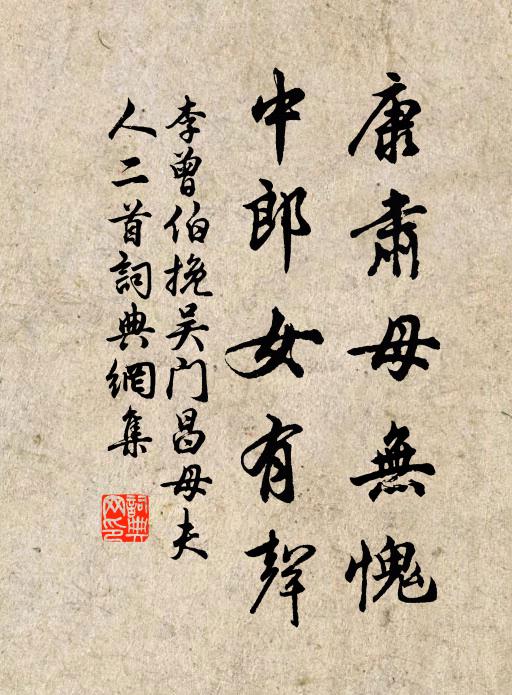 康肅母無愧
中郎女有聲
李曾伯挽吴门昌母夫
人二首詞典網集
詞典
网印